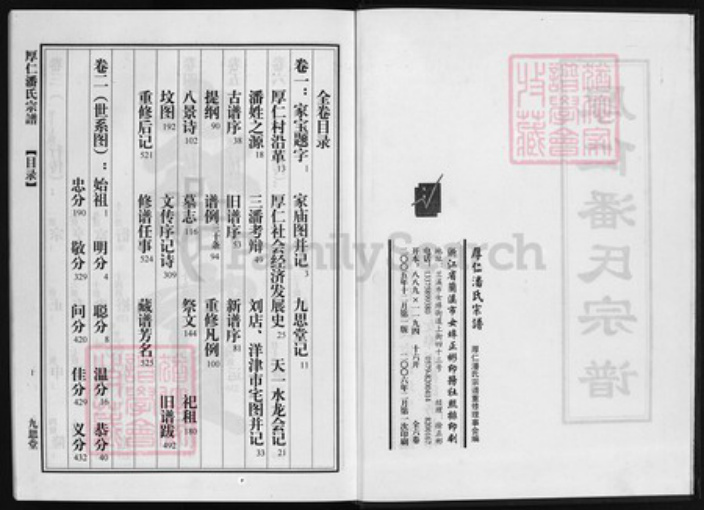 厚仁潘氏宗譜
厚仁潘氏宗譜重修理事会编
浙江省蘭溪市女埠正彬印務社熊梯印刷
地址：兰溪市女埠街道上街四十三号
开本：八八九×一一九四 十六开 全六卷
二〇〇五年十二月第一版 二〇〇六年二月第一次印刷
全卷目录
卷一：家宝题字 1 家庙图并记 3 九思堂记 11
厚仁村沿革 13 厚仁社会经济发展史 25 天一水龙会记 21
潘姓之源 18 三潘考辩 49 刘店、洋津市宅图并记 33
古谱序 38 旧谱序 53 新谱序 81
提纲 90 谱例二十条 94 重修凡例 100
八景诗 102 墓志 116 祭文 144 祀租 180
坟图 192 文传序记诗 309 旧谱跋 492
重修后记 521 修谱任事 524 藏谱芳名 525
卷二（世系图）：始祖 1 明分 4 聪分 8 温分 16 恭分 40
忠分 190 敬分 329 问分 420 佳分 429 义分 432
厚仁潘氏宗譜 【目录】 1 九思堂
FamilySearch